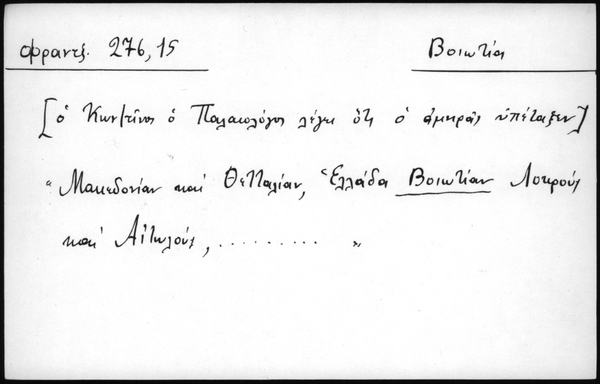 Φραντζ. 276,15 Βοιωτία
[ὁ Κων/τῖνος ὁ Παλαιολόγος λέγει ὅτι ὁ ἀμηρᾶς ὑπέταξεν]
"Μακεδονίαν καὶ Θετταλίαν, Ἑλλάδα Βοιωτίαν Λοκροὺς
καὶ Αἰτωλούς, ......... "